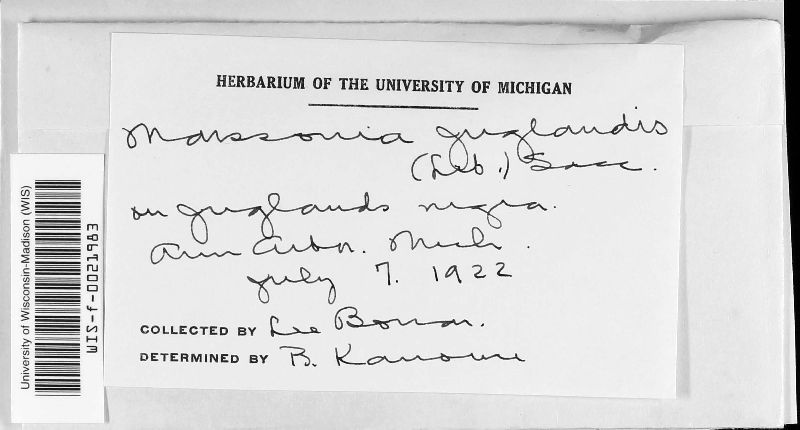 HERBARIUM OF THE UNIVERSITY OF MICHIGAN
Marssonia Juglandis
(Lib.) Sacc.
on Juglands nigra.
Ann Arbor. Mich.
July 7. 1922
COLLECTED BY Lee Bonar.
DETERMINED BY B. Kanouse
University of Wisconsin-Madison (WIS)
WIS-f-0021983